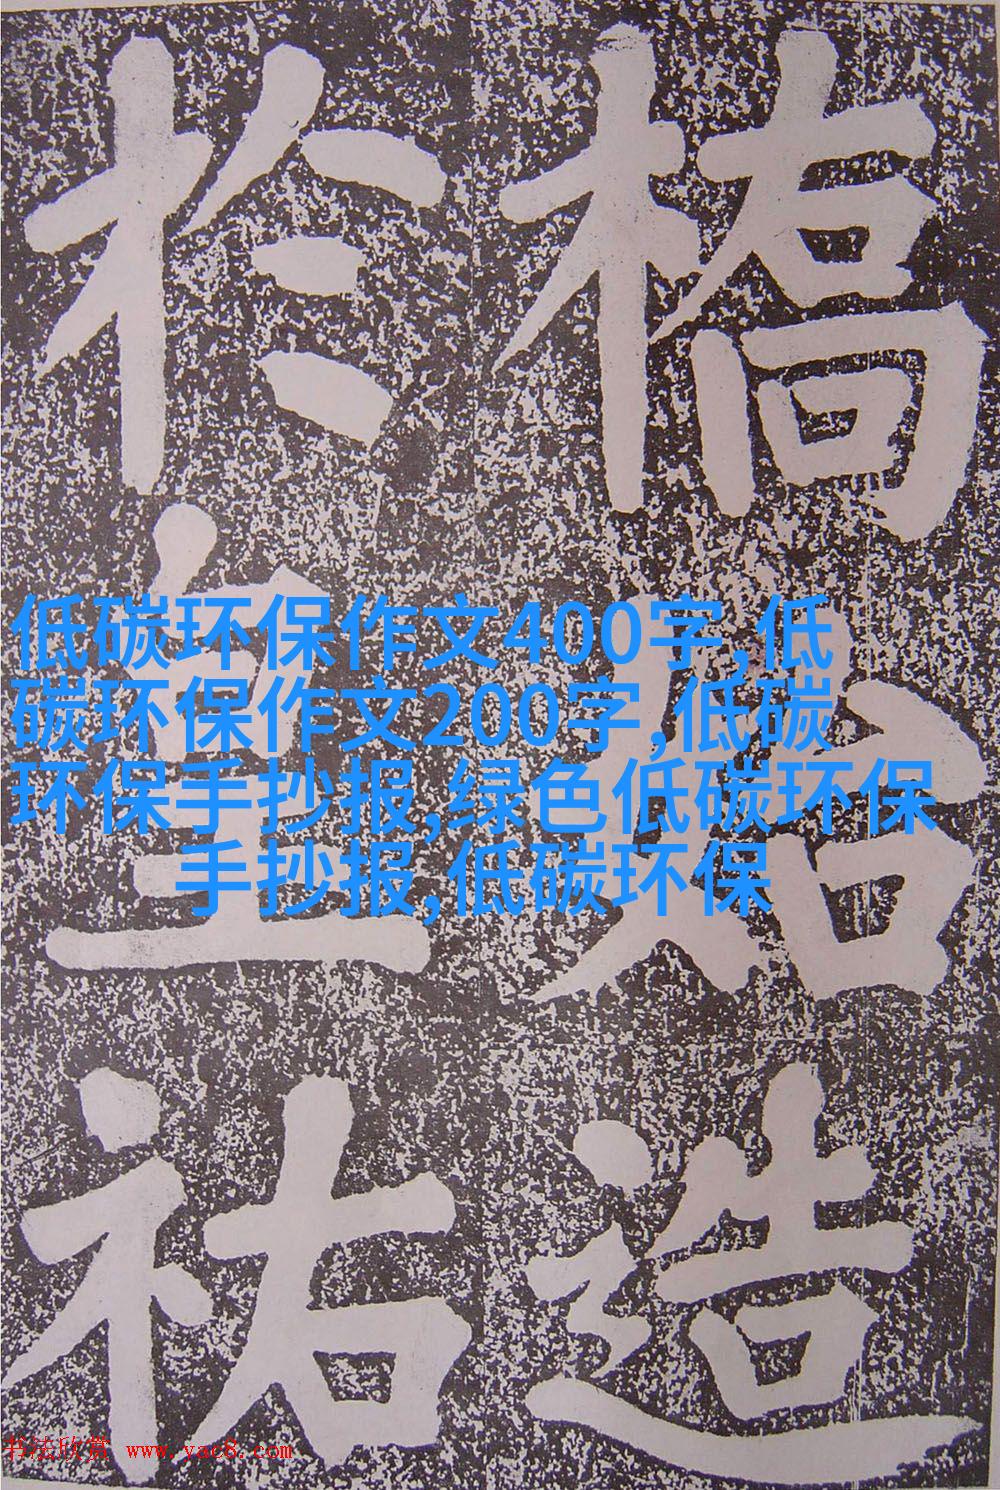 橋始造
於皇祐
低碳环保作文400字,低
碳环保作文200字,低碳
环保手抄报,绿色低碳环保
手抄报,低碳环保
书法欣赏 www.yac8.com